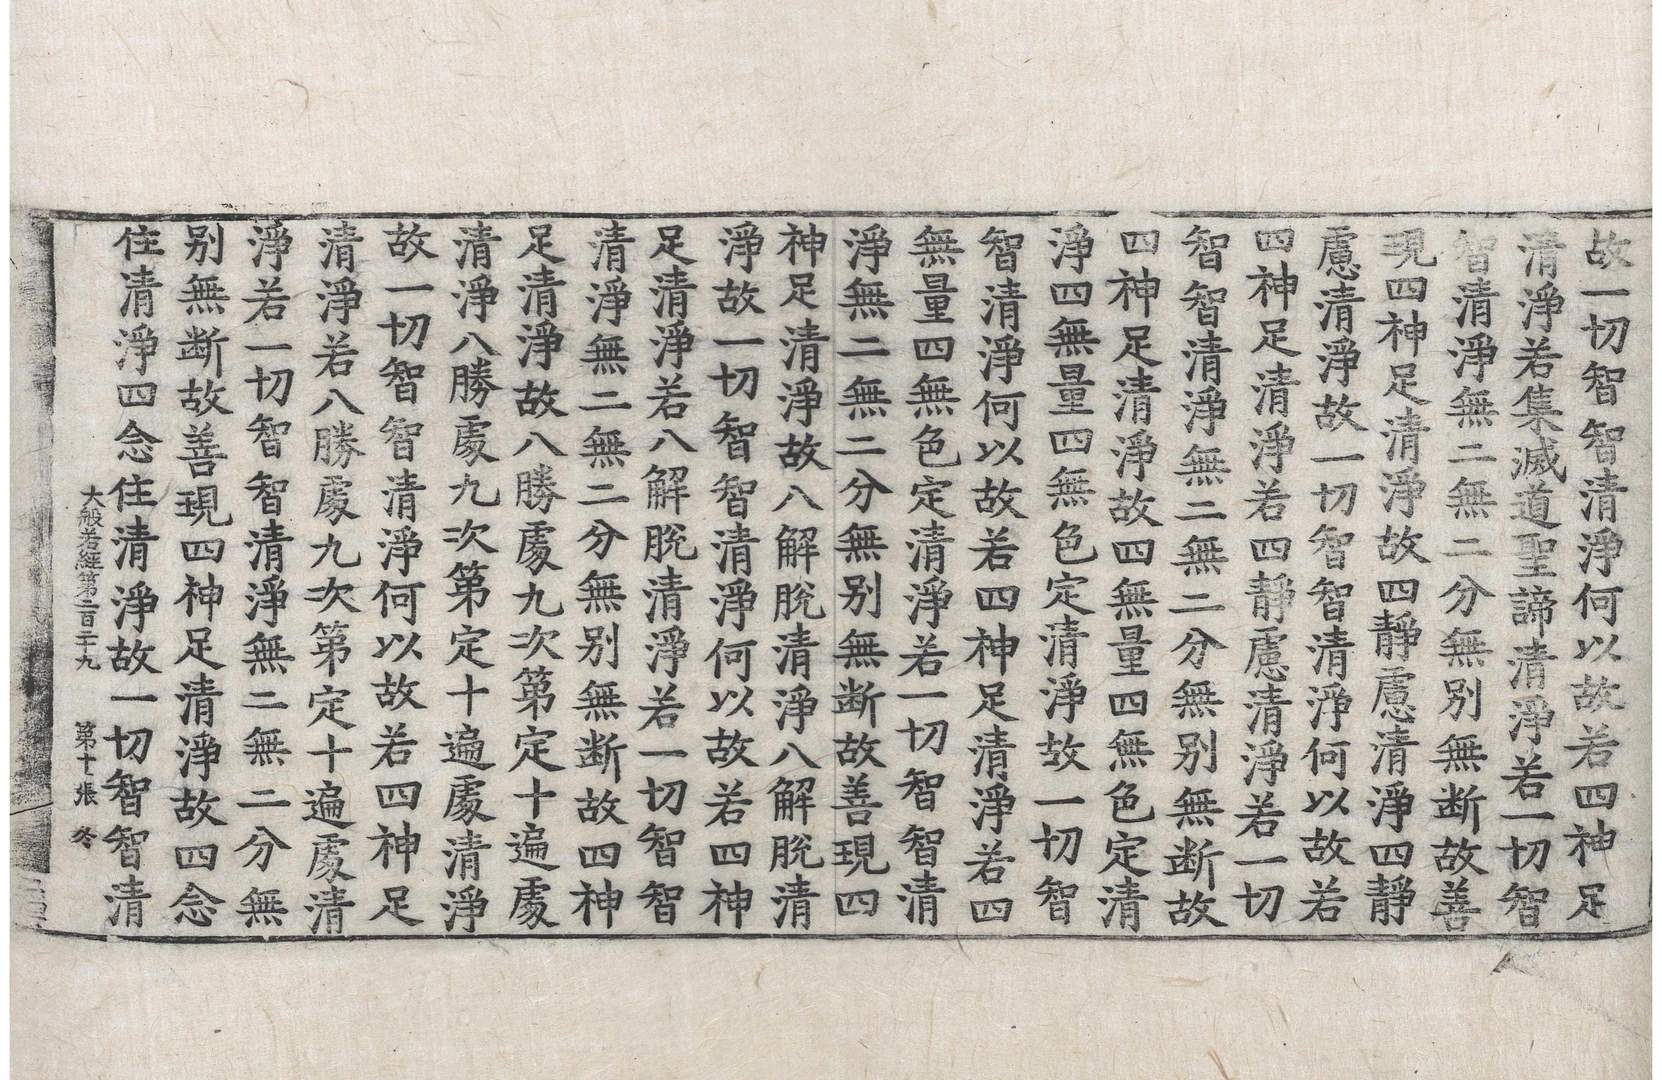 故一切智智清淨何以故若四神足
清淨若集滅道聖諦清淨若一切智
智清淨無二無二分無别無断故善
現四神足清淨故四靜慮清淨四靜
慮清淨故一切智智清淨何以故若
四神足清淨若四靜慮清淨若一切
智智清淨無二無二分無别無断故
四神足清淨故四無量四無色定清
淨四無量四無色定清淨故一切智
智清淨何以故若四神足清淨若四
無量四無色定清淨若一切智智清
淨無二無二分無别無断故善現四
神足清淨故八解脫清淨八解脫清
淨故一切智智清淨何以故若四神
足清淨若八解脫清淨若一切智智
清淨無二無二分無别無断故四神
足清淨故八勝處九次第定十遍處
清淨八勝處九次第定十遍處清淨
故一切智智清淨何以故若四神足
清淨若八勝處九次第定十遍處清
淨若一切智智清淨無二無二分無
别無断故善現四神足清淨故四念
住清淨四念住清淨故一切智智清
大般若經第二百二十九 第十張 冬